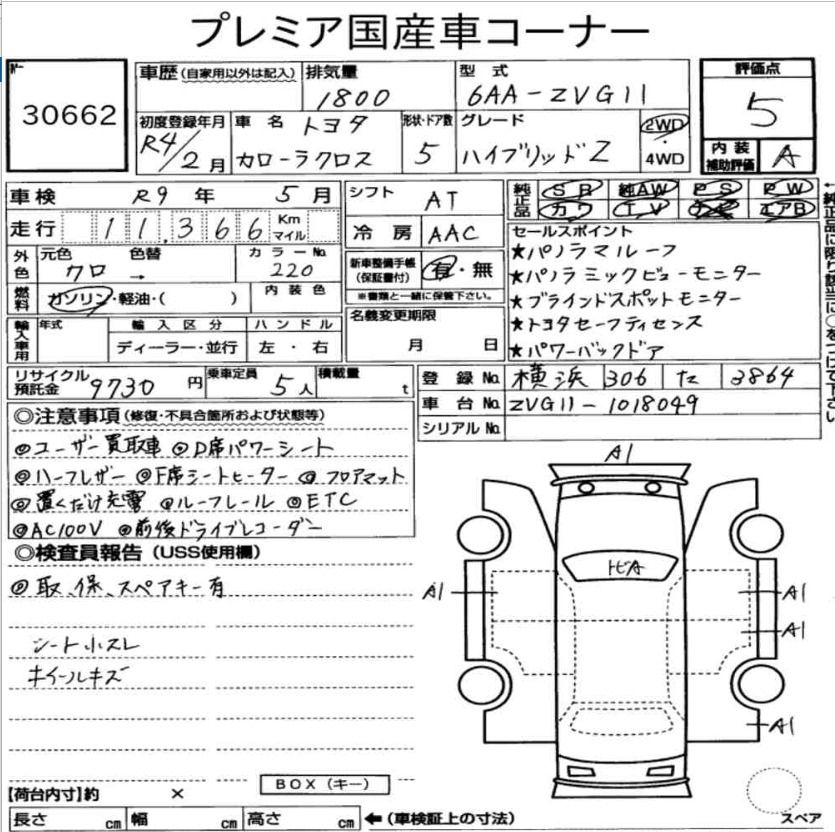 プレミア国産車コーナー
30662
車歴(自家用以外は記入) 排気量 型式 評価点
1800 6AA-ZVG11 5
初度登録年月 車名 トヨタ 形状・ドア数 グレード 2WD・4WD
R4/2月 カローラクロス 5 ハイブリッドZ
内装補助評価 A
車検 R9年 5月 シフト AT
純正品 SR 純AW PS PW
走行 11,366 Km マイル 冷房 AAC
カワ TV エアB
外色 元色 クロ 色替 → カラーNo. 220
新車整備手帳(保証書付) 有・無
※書類と一緒に保管下さい。
燃料 ガソリン・軽油・( ) 内装色
セールスポイント
★パノラマルーフ
★パノラミックビューモニター
★ブラインドスポットモニター
★トヨタセーフティセンス
★パワーバックドア
輸入車用 年式 輸入区分 ハンドル
ディーラー・並行 左・右
名義変更期限
月 日
リサイクル預託金 9730円 乗車定員 5人 積載量 t
登録No. 横浜 306 た 3864
車台No. ZVG11-1018049
シリアルNo.
◎注意事項(修復・不具合箇所および状態等)
◎ユーザー買取車 ◎D席パワーシート
◎ハーフレザー ◎F席シートヒーター ◎フロアマット
◎置くだけ充電 ◎ルーフレール ◎ETC
◎AC100V ◎前後ドライブレコーダー
◎検査員報告(USS使用欄)
◎取、保、スペアキー有
シート小スレ
ホイールキズ
A1
トビA
A1
A1
A1
A1
BOX(キー)
【荷台内寸】約 ×
長さ cm 幅 cm 高さ cm ←(車検証上の寸法)
スペア